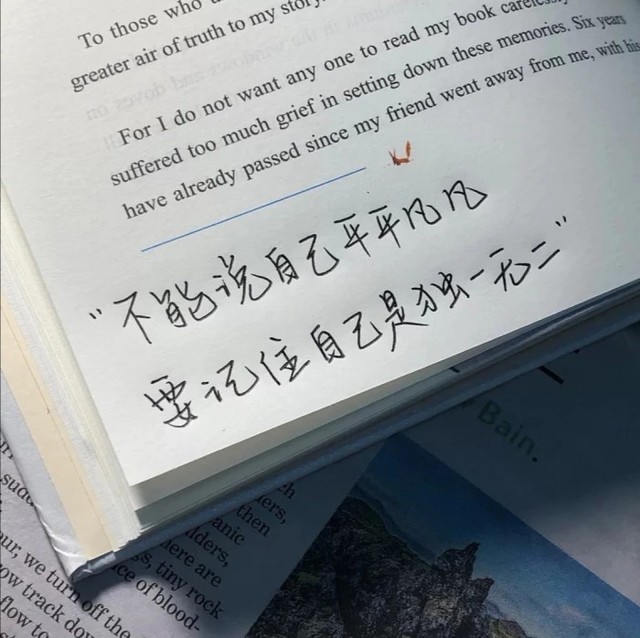 To those who
greater air of truth to my story.
For I do not want any one to read my book carelessly
suffered too much grief in setting down these memories. Six years
have already passed since my friend went away from me, with his
“不能说自己平平凡凡
要记住自己是独一无二”
Bain.
then
anic
here are
tiny rock
ce of blood-
our, we turn off the
ow track dow
flow to